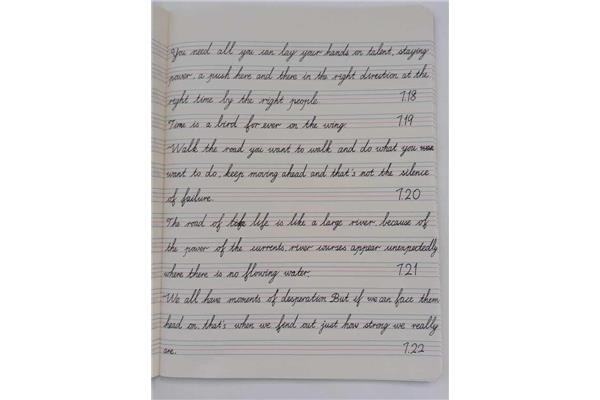 You need all you can lay your hands on talent, staying
power, a push here and there in the right direction at the
right time by the right people. 7.18
Time is a bird for ever on the wing. 7.19
Walk the road you want to walk and do what you
want to do, keep moving ahead and that's not the silence
of failure. 7.20
The road of life is like a large river, because of
the power of the currents, river courses appear unexpectedly
where there is no flowing water. 7.21
We all have moments of desperation. But if we can face them
head on, that's when we find out just how strong we really
are. 7.22